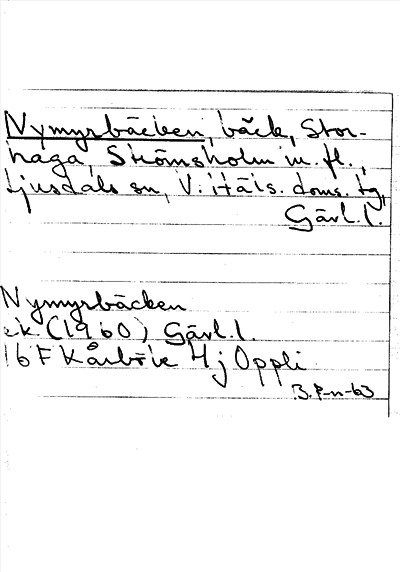 Nymyrbäcken, bäck, Stor-
haga, Strömsholm m.fl.,
Ljusdals sn, V. Häls. doms. tg,
Gävl.l.
Nymyrbäcken
ek (1960) Gävl.l.
16F Kårböle 4j Oppli
B.P-n-63